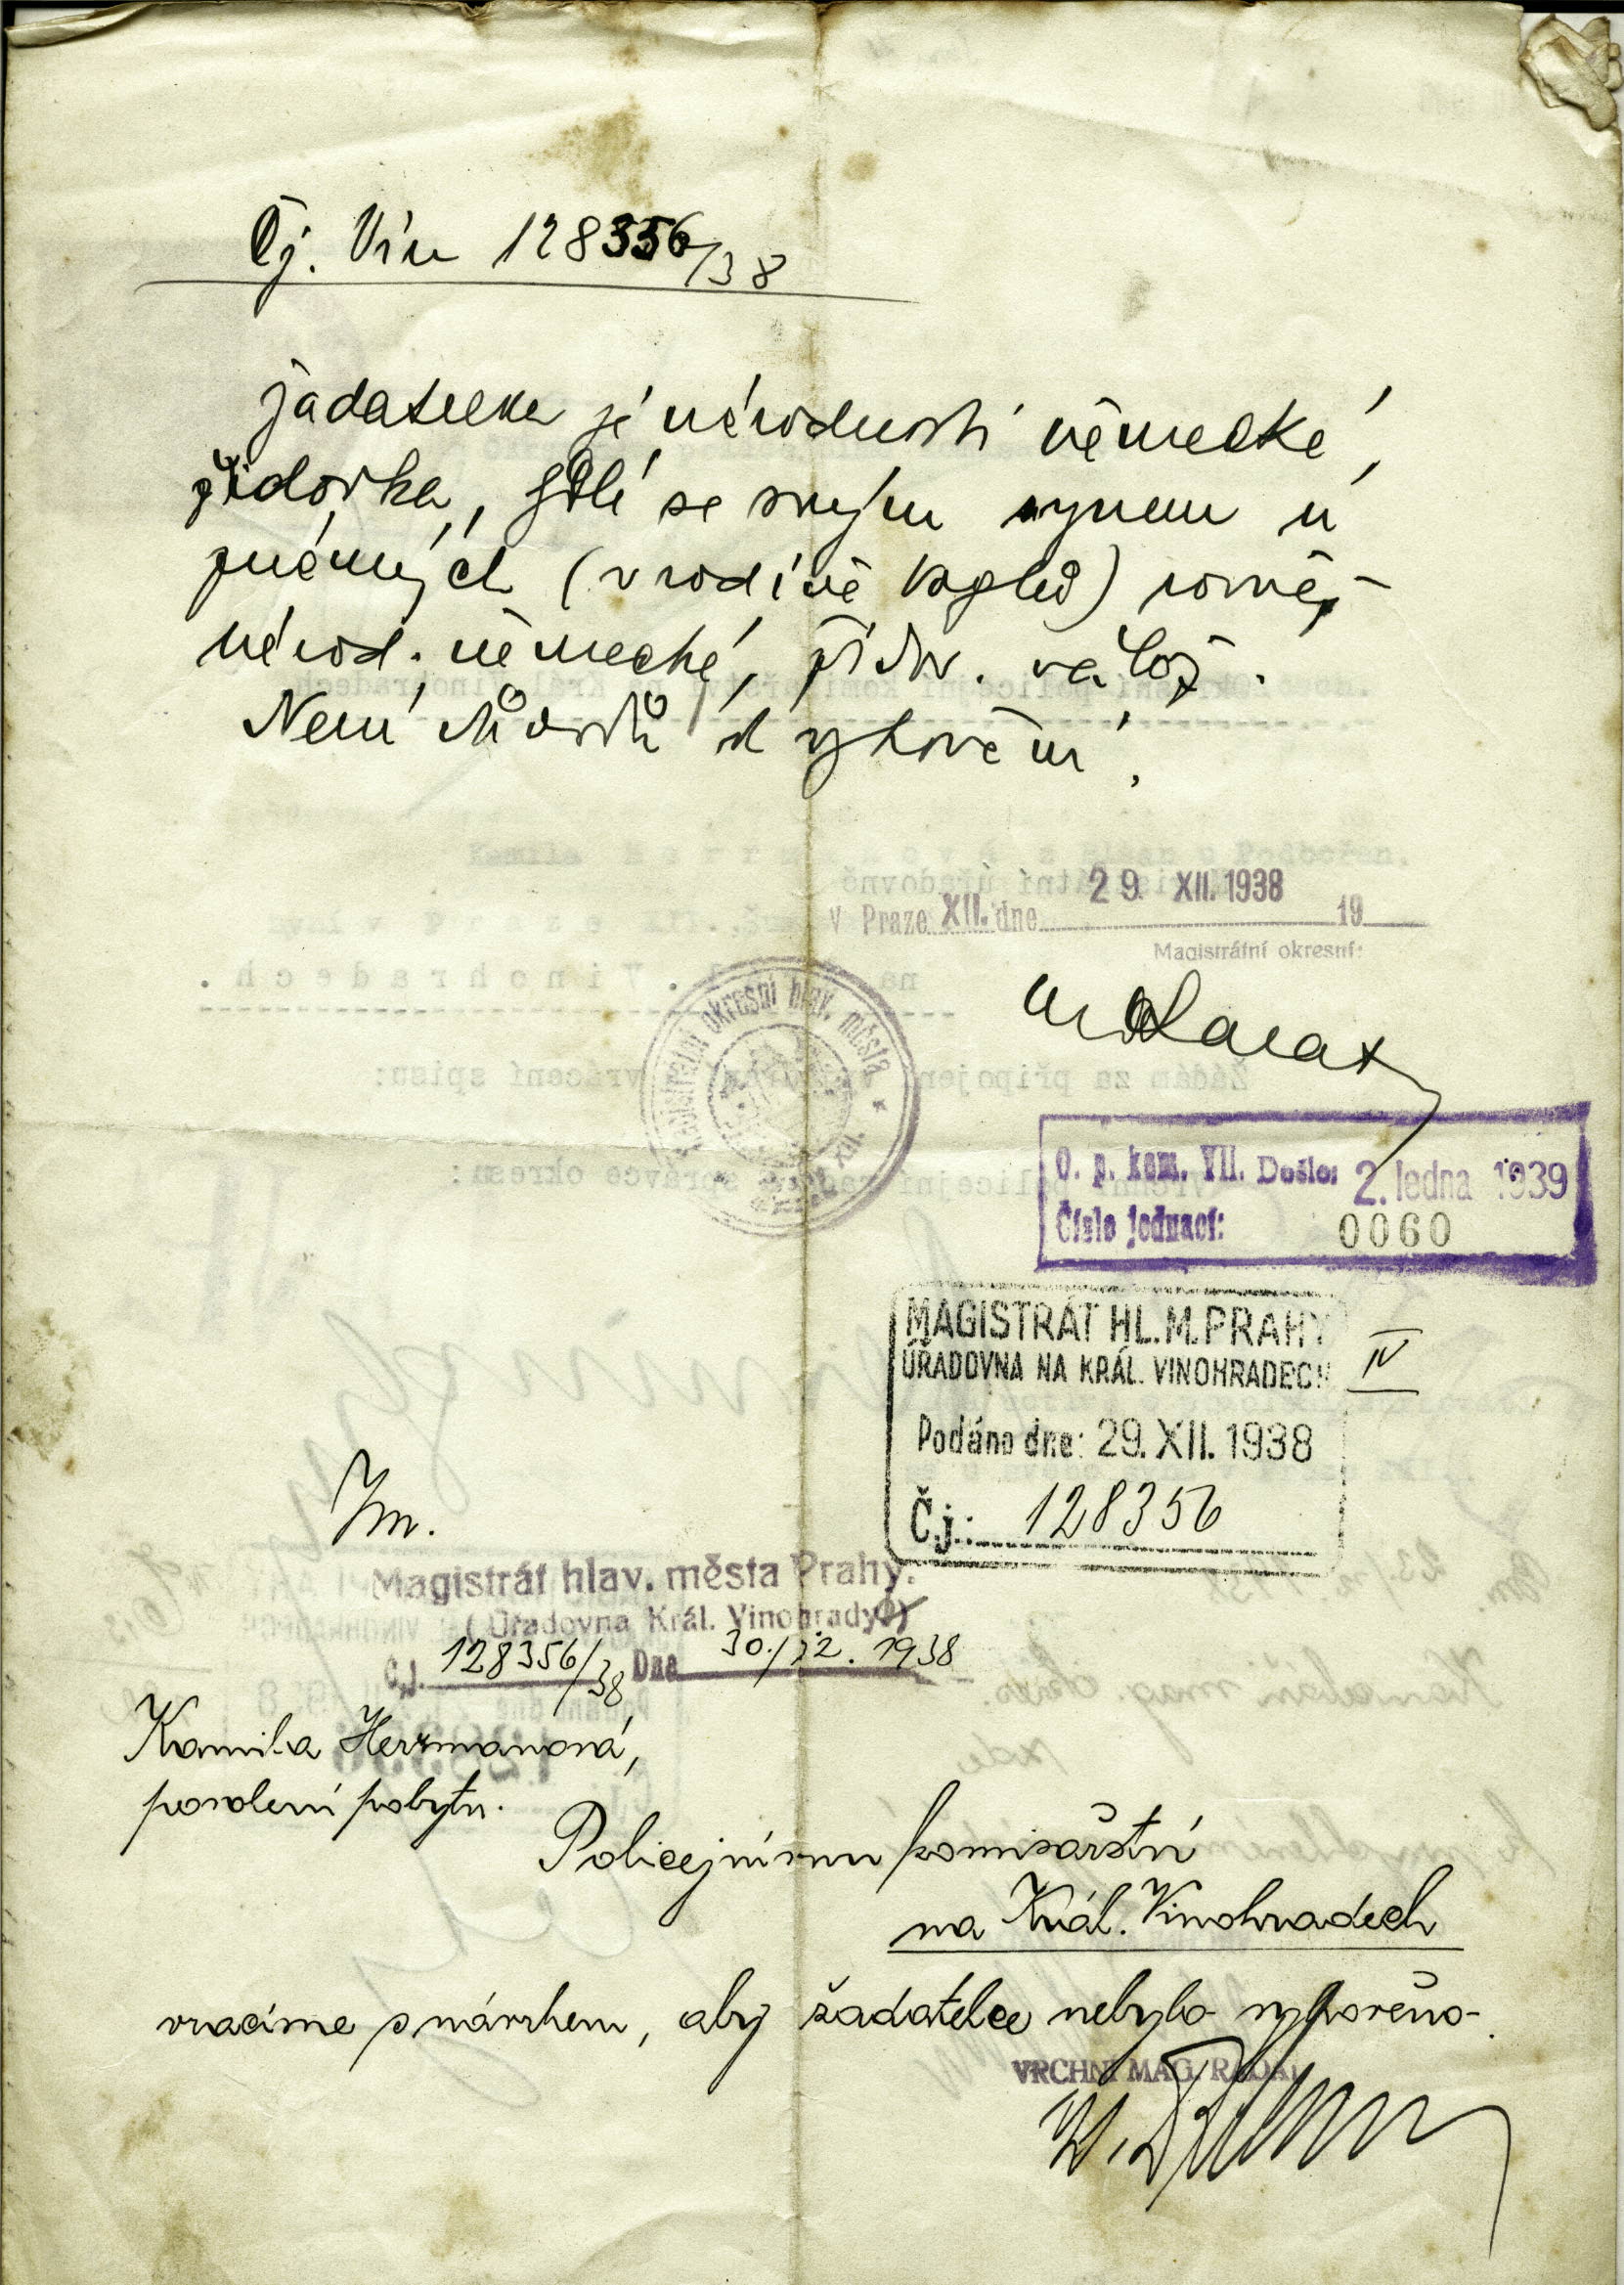 Čj. Vin 128356/38
žadatelka je národnosti německé,
židovka, sdlí se svým synem u
známých (v rodině Voglů) rovněž
národ. německé, židov. nábož.
Není důvodů k vyhovění.
V Praze XII. dne 29. XII. 1938 19
Magistrátní okresní:
Magistrátní okresní hlav. města
O. p. kom. VII. Došlo: 2. ledna 1939
Číslo jednací: 0060
MAGISTRÁT HL. M. PRAHY
ÚŘADOVNA NA KRÁL. VINOHRADECH IV
Podáno dne: 29. XII. 1938
Č.j.: 128356
Magistrát hlav. města Prahy.
(Úřadovna Král. Vinohrady)
Č.j. 128356/38 Dne 30./12. 1938
Kamila Herrmanová,
povolení pobytu.
Policejnímu komisařství
na Král. Vinohradech
vracíme s návrhem, aby žadatelce nebylo vyhověno.
VRCHNÍ MAG. RADA: